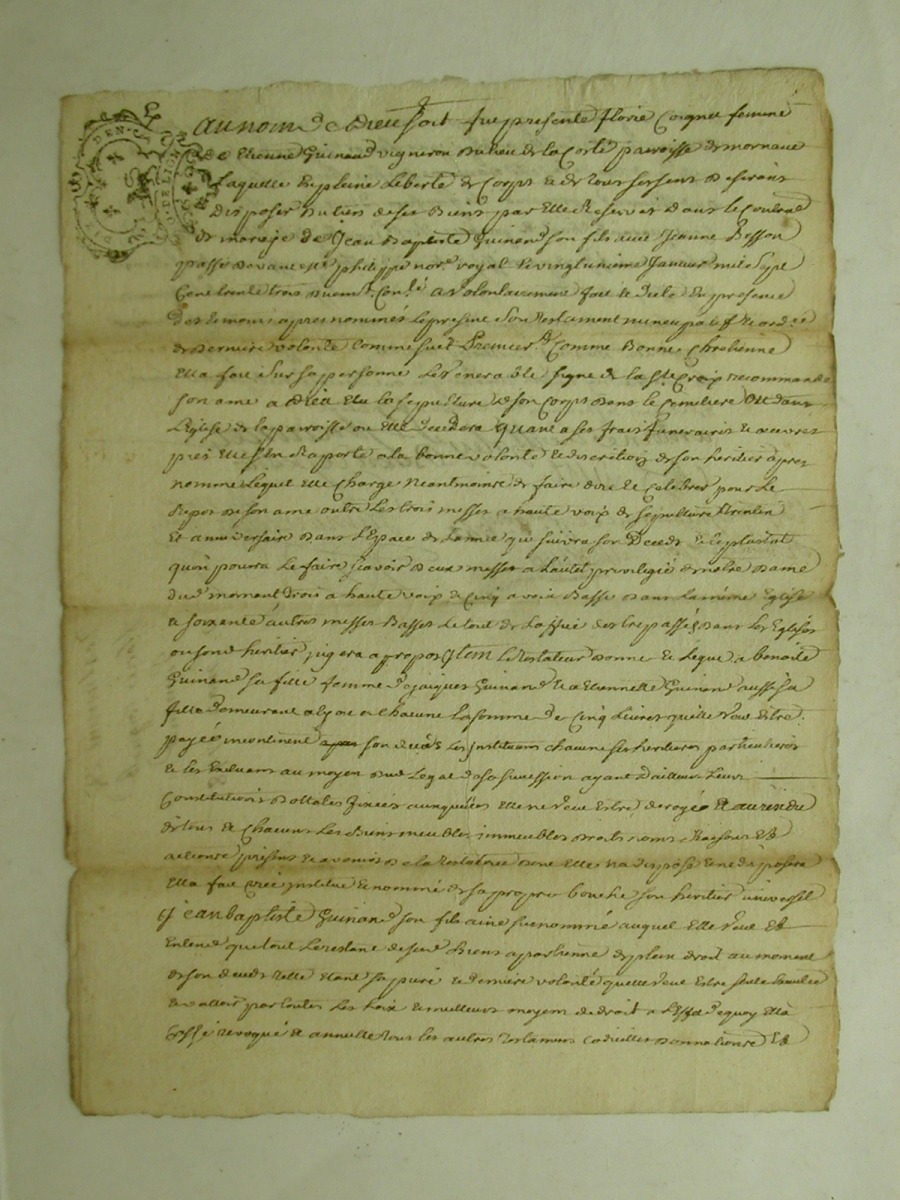 DEN
Au nom de Dieu soit fut presente florie Coignet femme
de Etienne Guinand vigneron du lieu de la Coste parroisse de mornant
Laquelle de pleine Liberté de Corps et de tous ses sens desirant
Disposer du bien de ses Biens par Elle Reservés Dans le Contrat
de mariage de Jean Baptiste Guinand son fils avec Jeanne Besson
passé devant philippe nore Royal Le vingtunieme Janvier mil sept
Cent trente trois a volontairement fait et dicté En presence
Des temoins apres nommés le present son testament nuncupatif
de derniere volonté Comme suit Premiert Comme Bonne Chretienne
Ella fait sur sa personne Le Venerable signe de la Ste Croix recommandé
son ame a Dieu Elu la sepulture de son Corps dans le Cemetiere Ou dans
L'Eglise de la parroisse ou Elle decedera Quant a ses frais funeraires et œuvres
pies Elle s'en Raporte a la bonne volonté et discretion de son heritier apres
nommé Lequel Elle Charge Neantmoins de faire dire et Celebrer pour Le
Repos de son ame outre Les trois messes a haute voix de sepulture
Et anniversaire dans L'Espace de L'année qui suivra son Deceds et le plustot
qu'on pourra Le faire scavoir deux messes a L'autel privilegié de notre Dame
Dud mornant trois a haute voix et Cinq a voix Basse dans La meme Eglise
et soixente autres messes Basses Le tout de La des trepassés dans Les Eglises
ou sond heritier jugera apropos Item La Donne et Legue a benoite
Guinand sa fille femme de jacques Guinand et a Etiennette Guinand aussi sa
fille demeurant a Lyon a Chacune La somme de Cinq Livres qu'elle veut Estre
payée incontinent apres son deceds Les Instituans chacune ses heritieres particulieres
et les Excluans au moyen dud Legat de sa succession ayant d'ailleurs Leurs
Constitutions dottales fixées auxquelles Elle ne veut Estre derogé Et au residu
de tous et Chacuns Les Biens meubles immeubles droits noms Raisons Et
actions presens et avenir de la testatrice dont Elle n'a disposé et ne disposera
Ella fait créé institué et nommé de sa propre bouche son heritier universel
Jean Baptiste Guinand son fils ainé susnommé auquel Elle veut Et
Entend que tout Le restant de ses Biens apartienne de plein droit au moment
de son deceds telle Etant sa pure et derniere volonté quelle veut Estre seule
et valoir par toutes Les Loix et meilleurs moyens de droit a L'Effet de quoy Ella
Cassé revoqué et annullé tous les autres testamens Codicilles donnations Et